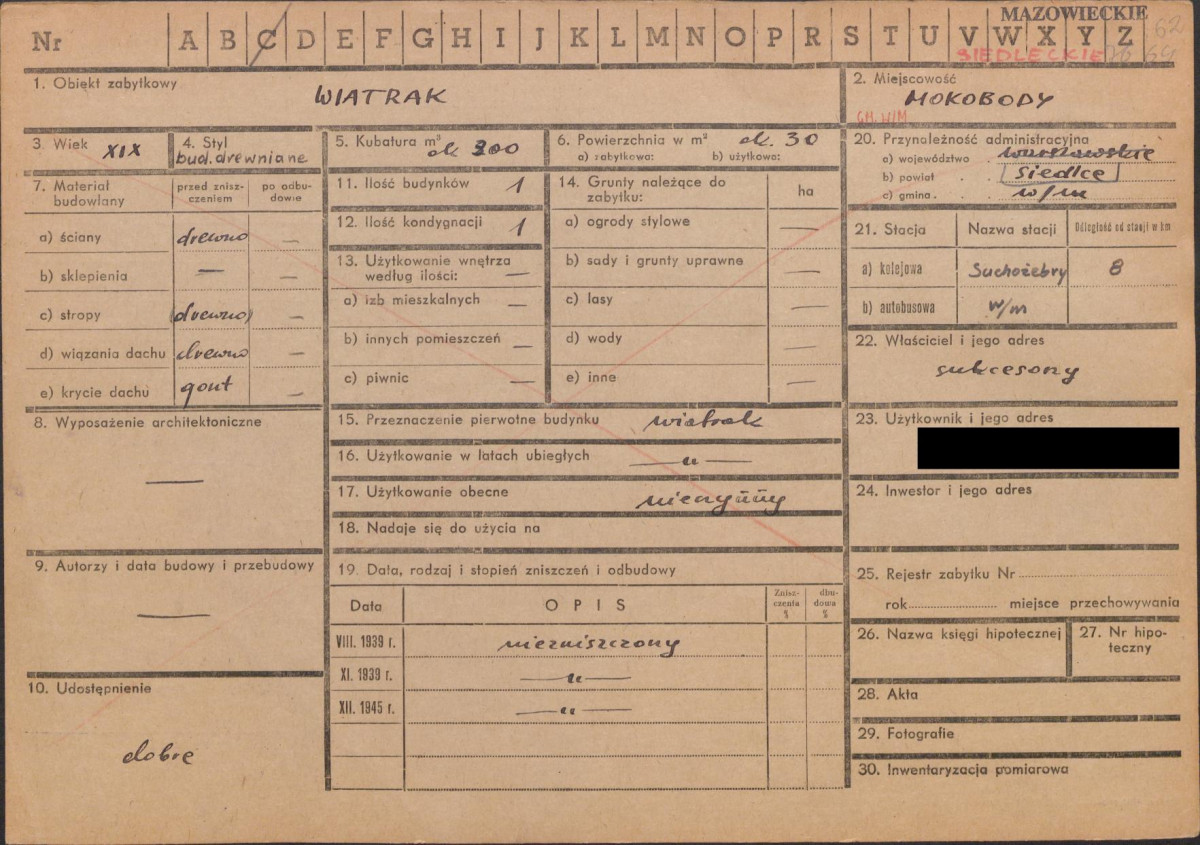 MAZOWIECKIE
Nr A B C D E F G H I J K L M N O P R S T U V W X Y Z 62
SIEDLECKIE
1. Obiekt zabytkowy
WIATRAK
2. Miejscowość
MOKOBODY
GM. W/M
3. Wiek XIX
4. Styl
bud. drewniane
5. Kubatura m³
ok 200
6. Powierzchnia w m² ok. 30
a) zabytkowa: b) użytkowa:
20. Przynależność administracyjna
a) województwo warszawskie
b) powiat . . siedlce
c) gmina . . . w/m
7. Materiał budowlany
przed zniszczeniem
po odbudowie
a) ściany drewno —
b) sklepienia — —
c) stropy (drewno) —
d) wiązania dachu drewno —
e) krycie dachu gont —
11. Ilość budynków 1
12. Ilość kondygnacji 1
13. Użytkowanie wnętrza
według ilości: —
a) izb mieszkalnych —
b) innych pomieszczeń —
c) piwnic —
14. Grunty należące do
zabytku:
ha
a) ogrody stylowe —
b) sady i grunty uprawne —
c) lasy —
d) wody —
e) inne —
21. Stacja Nazwa stacji Odległość od stacji w km
a) kolejowa Suchożebry 8
b) autobusowa w/m
22. Właściciel i jego adres
sukcesorzy
8. Wyposażenie architektoniczne
—
15. Przeznaczenie pierwotne budynku wiatrak
16. Użytkowanie w latach ubiegłych — " —
17. Użytkowanie obecne nieczynny
18. Nadaje się do użycia na
23. Użytkownik i jego adres
24. Inwestor i jego adres
9. Autorzy i data budowy i przebudowy
—
19. Data, rodzaj i stopień zniszczeń i odbudowy
Data OPIS Zniszczenia % dbudowa %
VIII. 1939 r. niezniszczony
XI. 1939 r. — " —
XII. 1945 r. — " —
25. Rejestr zabytku Nr
rok miejsce przechowywania
26. Nazwa księgi hipotecznej
27. Nr hipoteczny
10. Udostępnienie
dobre
28. Akta
29. Fotografie
30. Inwentaryzacja pomiarowa